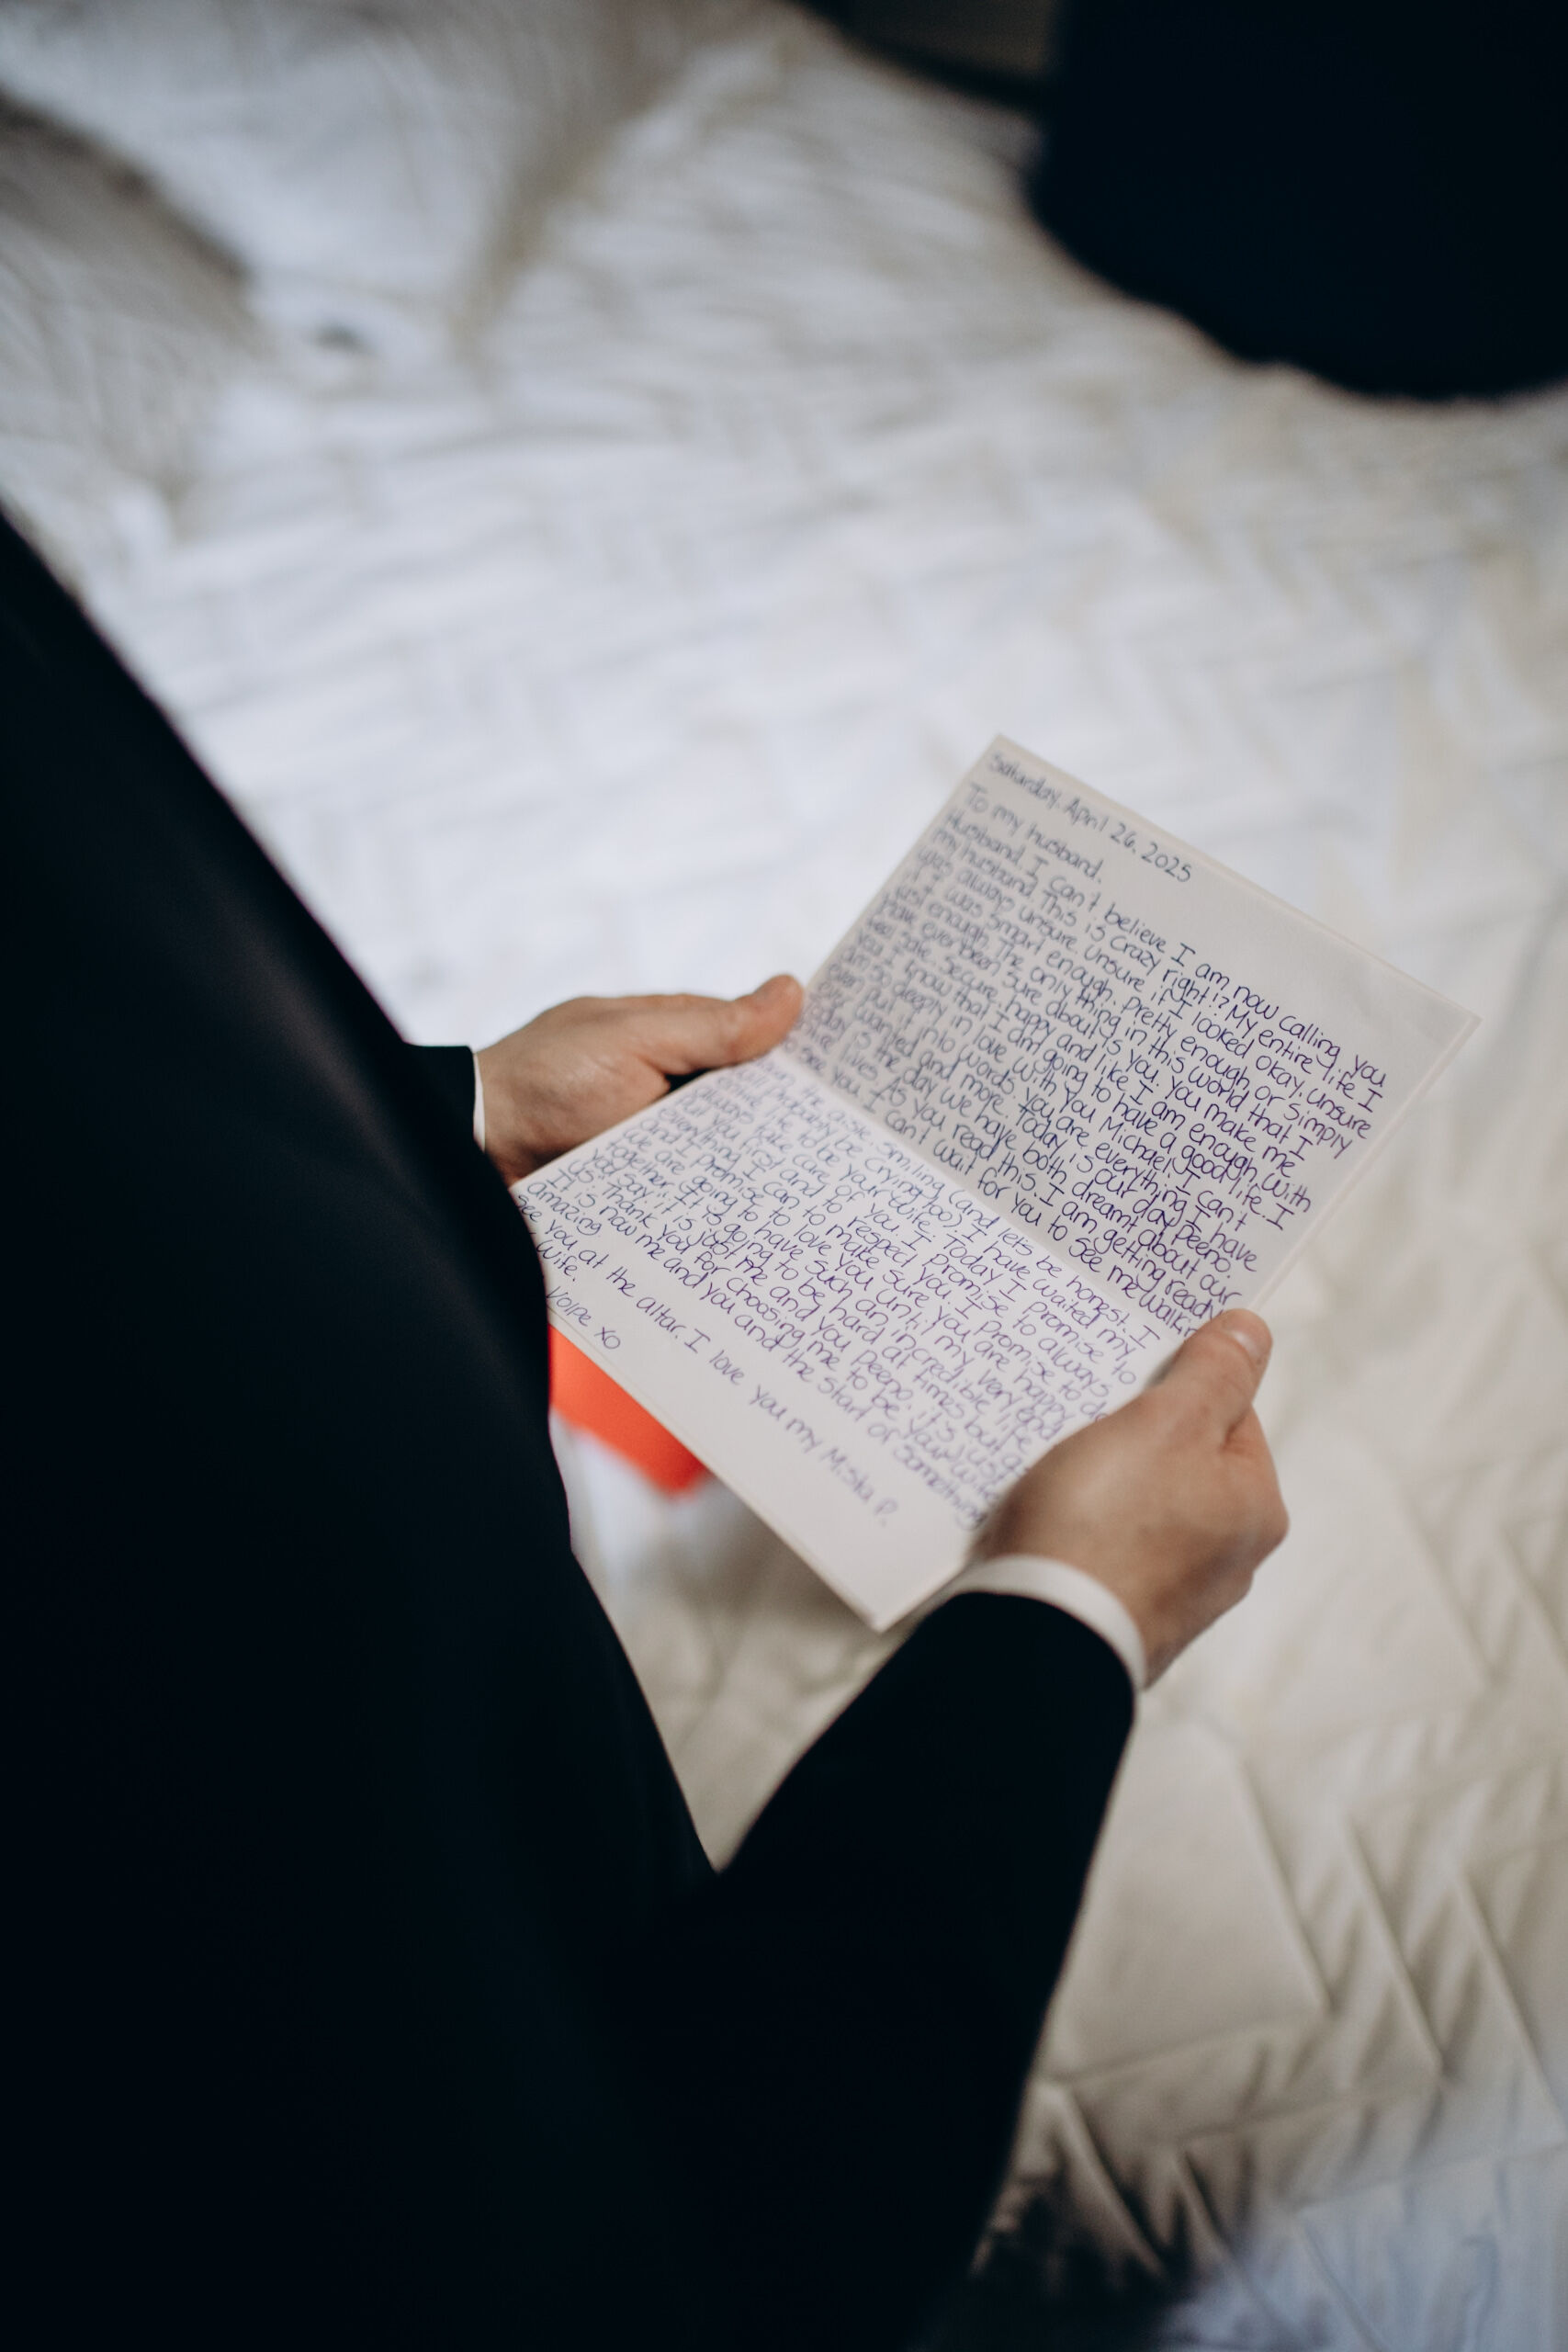 Saturday, April 26, 2025
To my husband.
Husband. I can't believe I am now calling you
my husband. This is crazy right!? My entire life I
was always unsure. Unsure if I looked okay, unsure
if I was smart enough, pretty enough, or simply
just enough. The only thing in this world that I
have ever been sure about is you. You make me
feel safe, secure, happy and like I am enough. With
you I know that I am going to have a good life. I
am so deeply in love with you Michael, I can't
even put it into words. You are everything I have
ever wanted and more. Today is our day Peeno.
Today is the day we have both dreamt about our
entire lives. As you read this, I am getting ready
to see you. I can't wait for you to see me walking
down the aisle smiling (and let's be honest, I
will probably be crying too). I have waited my
entire life to be your wife. Today I promise to
always take care of you. I promise to always
put you first and to respect you. I promise to do
everything I can to make sure you are happy
and I promise to love you until my very end.
We are going to have such an incredible life
together. It is going to be hard at times but as
you say, it is just me and you Peeno. it's just
us. Thank you for choosing me to be your wife
It is now me and you and the start of something
amazing
See you at the altar. I love you my Mista P.
Wife.
Volpe xo